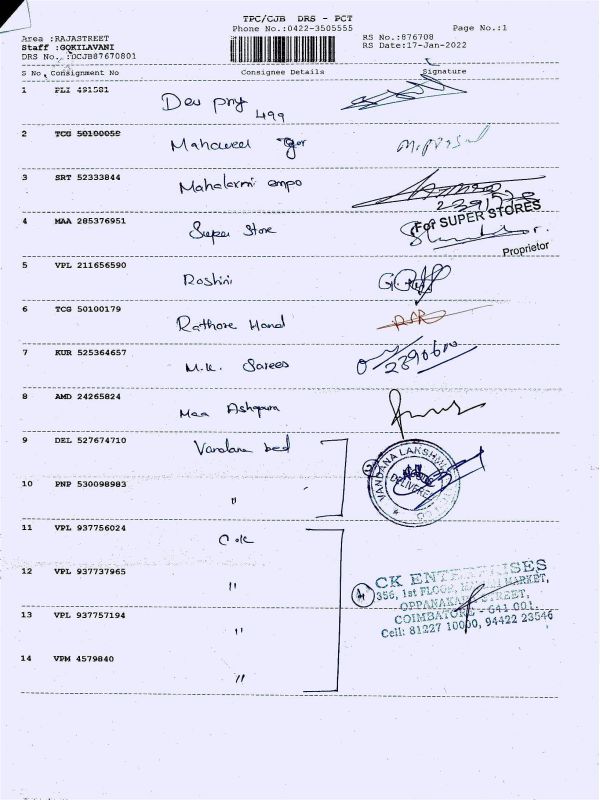 TPC/CJB DRS - PCT
Phone No.:0422-3505555
Page No.:1
Area :RAJASTREET
Staff :GOKILAVANI
DRS No. :DCJB87670801
RS No.:876708
RS Date:17-Jan-2022
S No. Consignment No Consignee Details Signature
1 PLI 491581 Dev
499
2 TCG 50100058
3 SRT 52333844 Mahalaxmi empo
4 MAA 285376951 Super Store
For SUPER STORES
Proprietor
5 VPL 211656590 Roshini
6 TCG 50100179 Rathore Hand
7 KUR 525364657 M.K. Sarees
8 AMD 24265824 Maa Ashapura
9 DEL 527674710 Vandana bed
VANDANA LAKSHMI
DELIVERED
10 PNP 530098983 "
11 VPL 937756024 C.K
12 VPL 937737965 "
13 VPL 937757194 "
14 VPM 4579840 "
CK ENTERPRISES
356, 1st FLOOR, MARKET,
OPPANAKARA STREET,
COIMBATORE - 641 001.
Cell: 81227 10000, 94422 23546